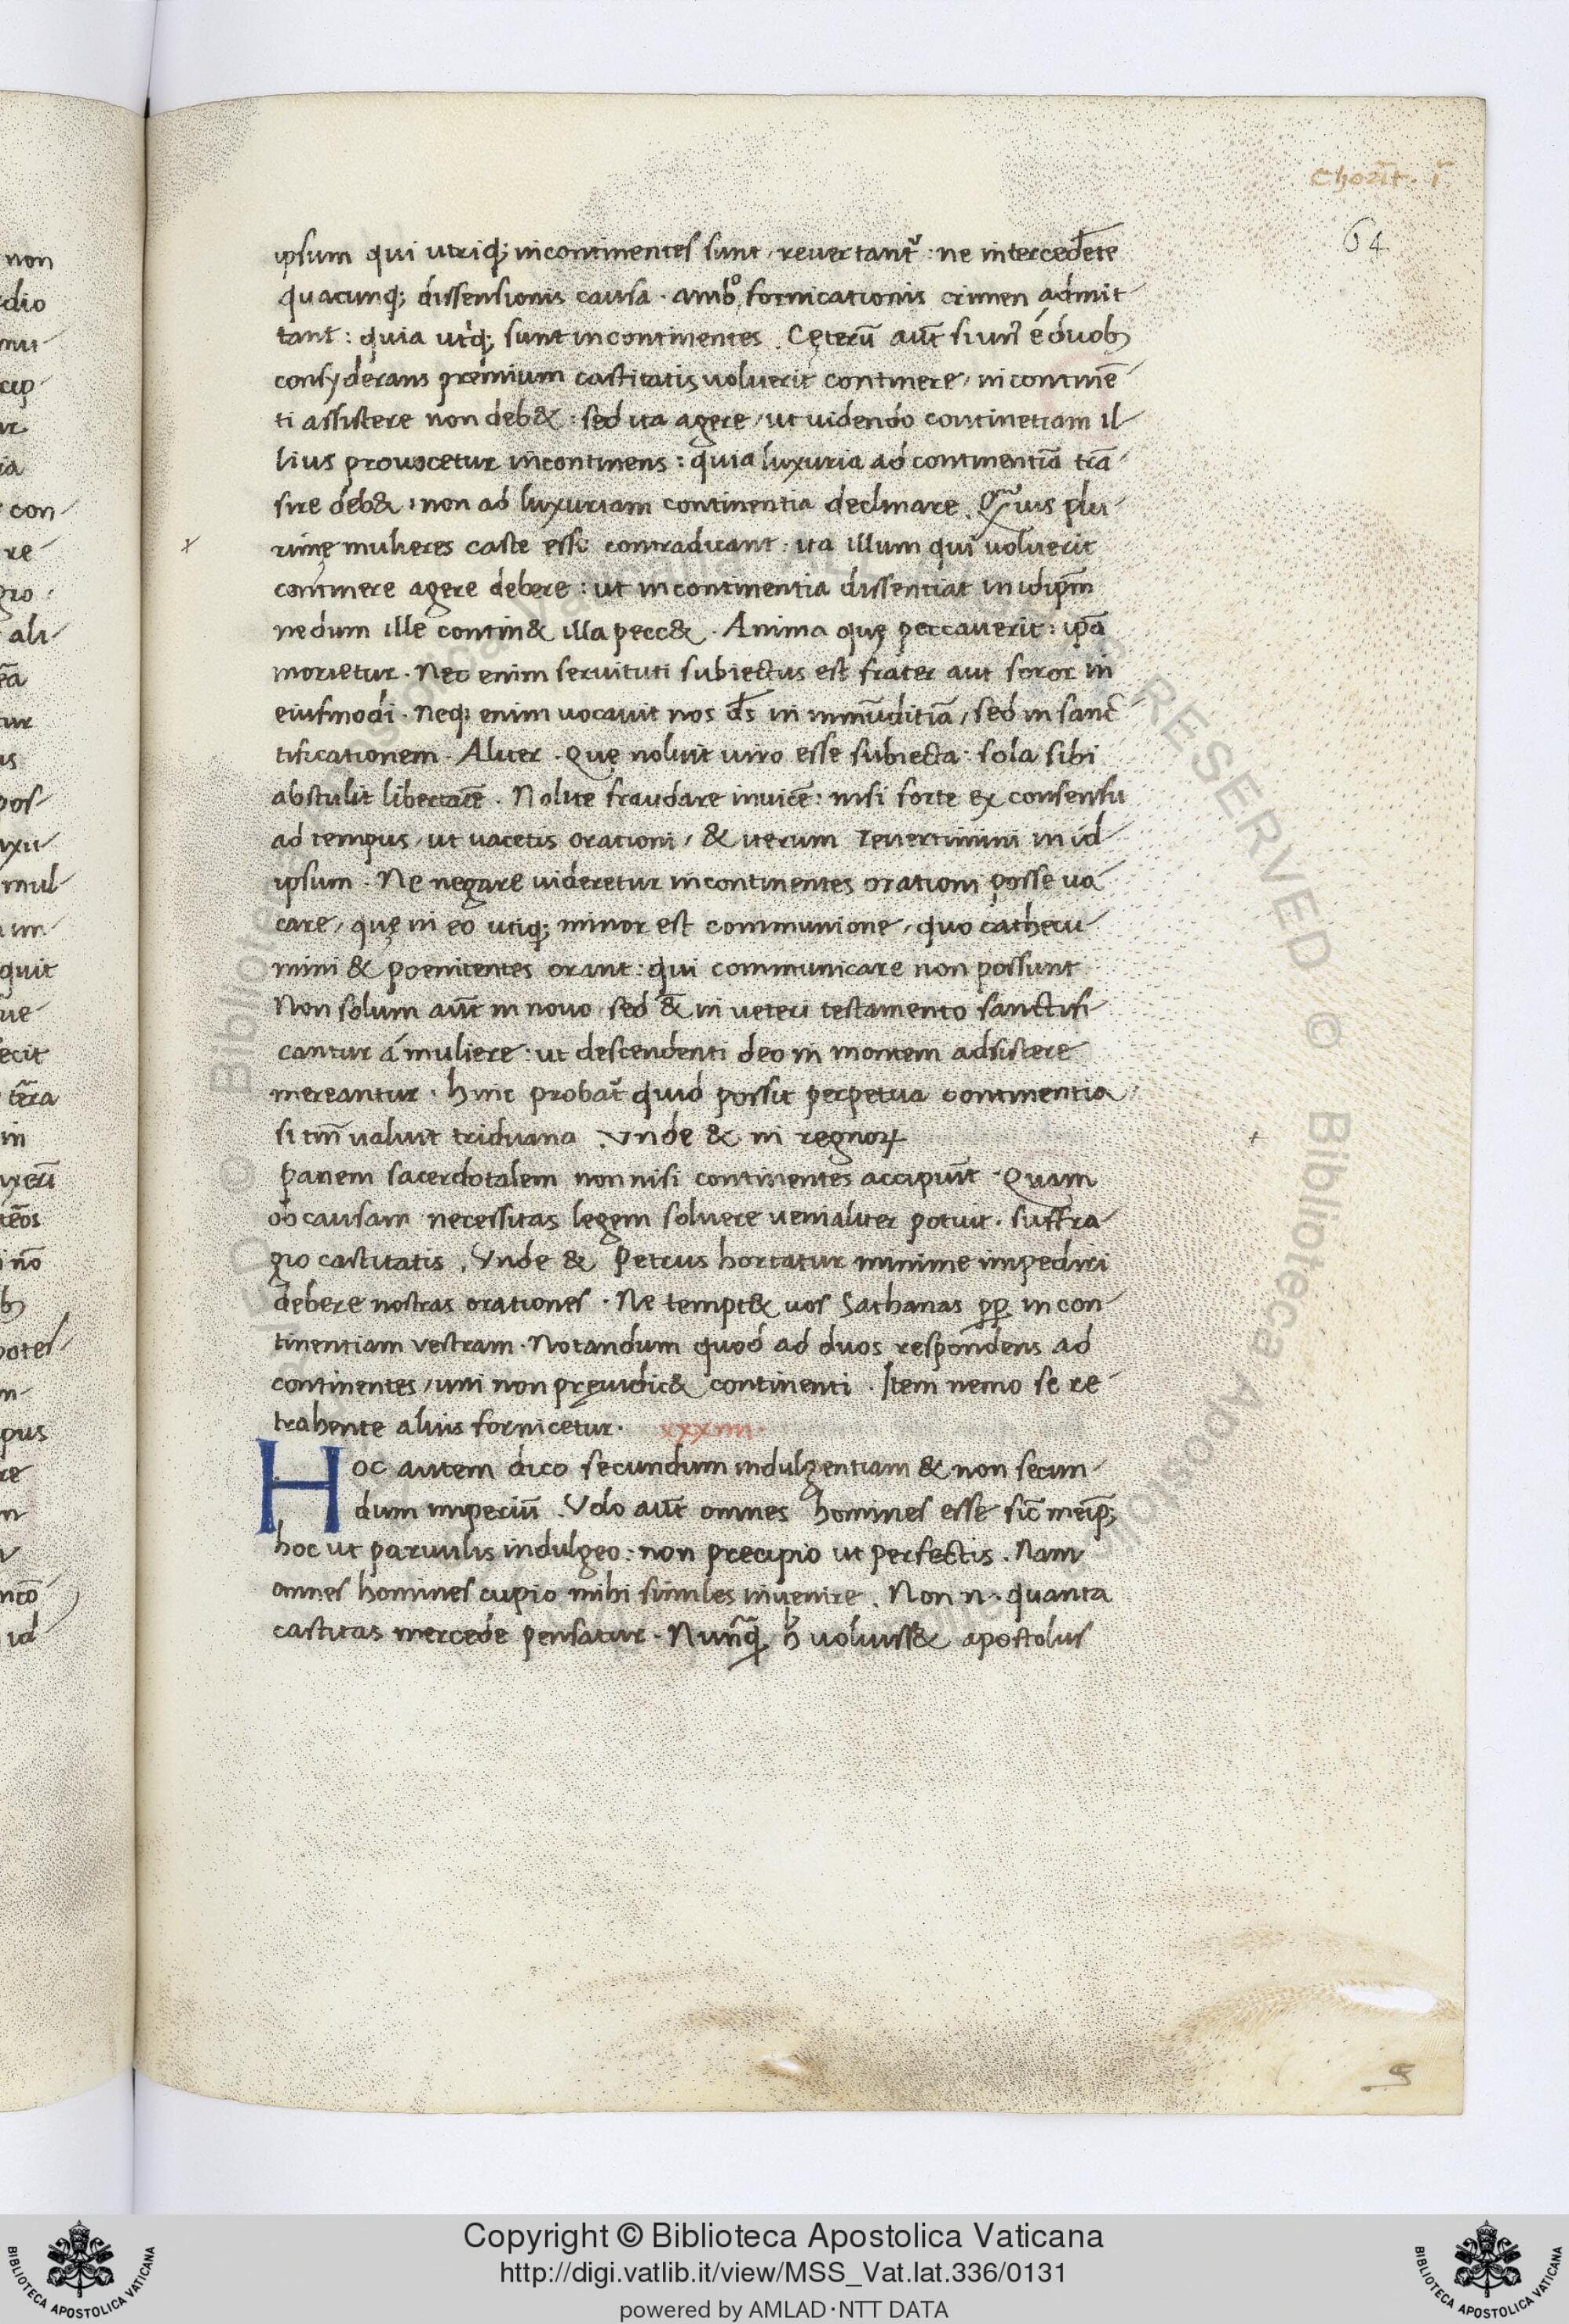 Chorīt. ī
64
ipsum qui utriq; incontinentes sunt, reuertant᷑: ne intercedēte
quacunq; dissensionis causa. ambo fornicationis crimen admit
tant: quia utrq; sunt incontinentes. Cęterū aūt si un᷑ é duob
consyderans premium castitatis uoluerit continere, incontinē
ti assistere non deb&: sed ita agere, ut uidendo continetiam il
lius prouocetur incontinens: quia luxuria ad continentiā trā
sire deb&: non ad luxuriam continentia declinare. Quis plu
rimę mulieres caste esse contradicant: ita illum qui uoluerit
continere agere debere: ut incontinentia dissentiat in idipm̄
nedum ille contin& illa pecc&. Anima quę peccauerit: ipā
morietur. Nec enim seruituti subiectus est frater aut soror in
eiusmodi. Neq; enim uocauit nos ds̄ in inmūditiā, sed in sanc
tificationem. Aliter. Quę noluit uiro esse subiecta: sola sibi
abstulit libertatē. Nolite fraudare inuicē: nisi forte ex consensu
ad tempus, ut uacetis orationi, & iterum reuertimini in id
ipsum. Ne negare uideretur incontinentes orationi posse ua
care, quę in eo utiq; minor est communione, quo cathecu
mini & poenitentes orant: qui communicare non possunt
Non solum aūt in nouo sed & in ueteri testamento sanctifi
cantur á muliere: ut descendenti deo in montem adsistere
mereantur. Hinc probat᷑ quid possit perpetua continentia
si tm̄ ualuit triduana. Vnde & in regnoꝝ
panem sacerdotalem non nisi continentes accipiūt. Quam
ob causam necessitas legem soluere uenialiter potuit. suffra
gio castitatis. Vnde & Petrus hortatur minime impediri
debere nostras orationes. Ne tempt& uos Sathanas ꝓp incon
tinentiam vestram. Notandum quod ad duos respondens ad
continentes, uni non pręiudic& continenti. Item nemo se re
trahente alius fornicetur. xxxiiii.
Hoc autem dico secundum indulgentiam & non secun
dum imperiū. Volo aūt omnes homines esse sic̄ meip̄;
hoc ut paruulis indulgeo: non precipio ut perfectis. Nam
omnes homines cupio mihi similes inuenire. Non n. quanta
castitas mercede pensatur. Nunq̄ h uoluiss& apostolus
Copyright © Biblioteca Apostolica Vaticana
http://digi.vatlib.it/view/MSS_Vat.lat.336/0131
powered by AMLAD·NTT DATA